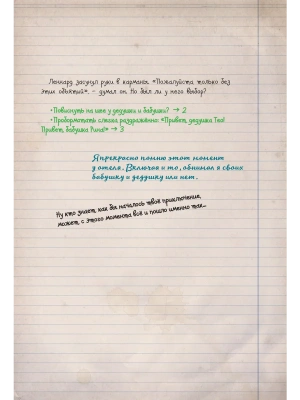 Леннард засунул руки в карманы. «Пожалуйста только без
этих объятий», – думал он. Но был ли у него выбор?
•Повиснуть на шее у дедушки и бабушки? → 2
•Пробормотать слегка раздражённо: «Привет, дедушка Тео!
Привет, бабушка Руна!» → 3
Я прекрасно помню этот момент
у отеля. Включая и то, обнимал я своих
бабушку и дедушку или нет.
Ну кто знает, как бы началось твоё приключение,
может, с этого момента всё и пошло именно так...